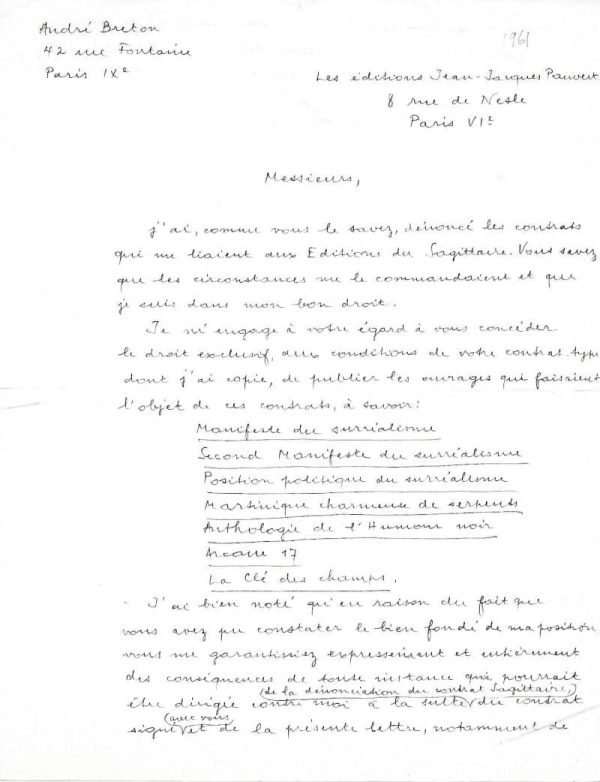 André Breton
42 rue Fontaine
Paris IXe
1961
Les éditions Jean-Jacques Pauvert
8 rue de Nesle
Paris VIe
Messieurs,
j'ai, comme vous le savez, dénoncé les contrats
qui me liaient aux Editions du Sagittaire. Vous savez
que les circonstances me le commandaient et que
je suis dans mon bon droit.
Je m'engage à votre égard à vous concéder
le droit exclusif, aux conditions de votre contrat type
dont j'ai copie, de publier les ouvrages qui faisaient
l'objet de ces contrats, à savoir:
Manifeste du surréalisme
Second Manifeste du surréalisme
Position politique du surréalisme
Martinique charmeuse de serpents
Anthologie de l'Humour noir
Arcane 17
La Clé des champs.
- J'ai bien noté qu'en raison du fait que
vous avez pu constater le bien fondé de ma position
vous me garantissiez expressément et entièrement
des conséquences de toute instance qui pourrait
(de la dénonciation du contrat Sagittaire,)
être dirigée contre moi à la suite du contrat
(avec vous)
signé et de la présente lettre, notamment de